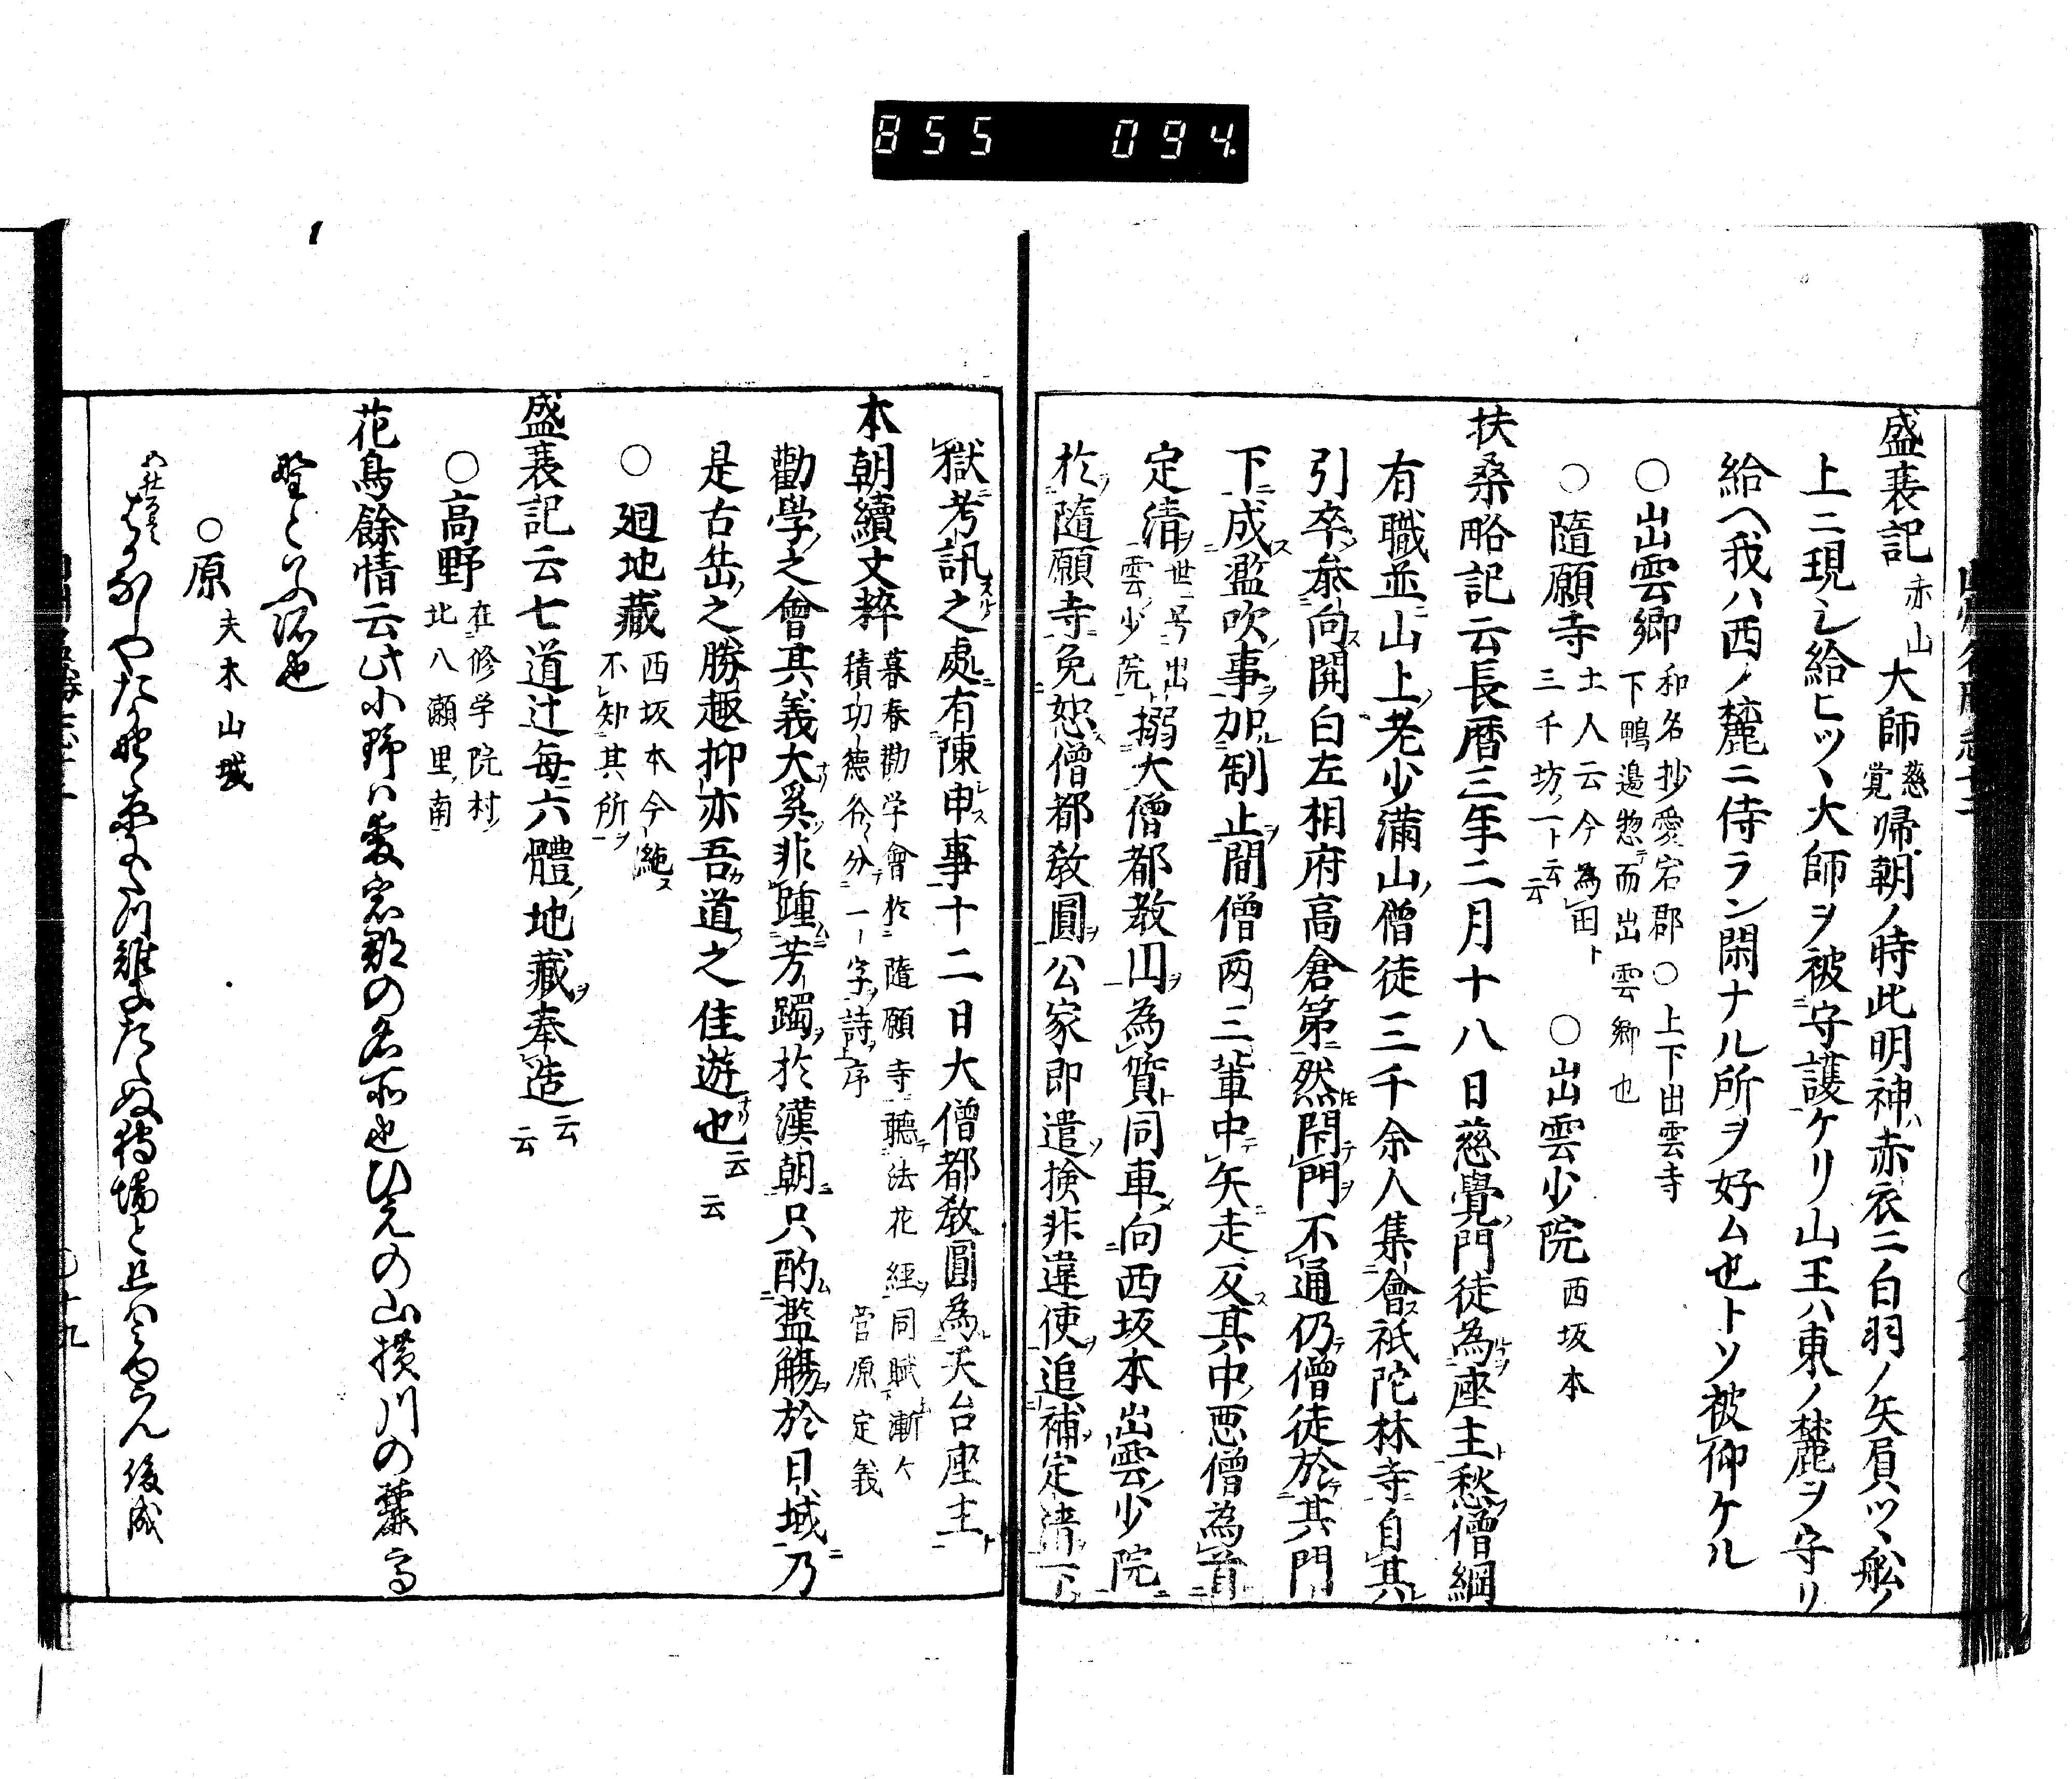 855 094
盛衰記 赤山 大師 慈覚 帰朝ノ時此明神ハ赤衣ニ白羽ノ矢負ツヽ舩ノ
上ニ現シ給ヒツヽ大師ヲ被守護ケリ山王ハ東ノ麓ヲ守リ
給ヘ我ハ西ノ麓ニ侍ラン閑ナル所ヲ好ム也トソ被仰ケル
○出雲郷 和名抄愛宕郡○上下出雲寺
下鴨邉惣而出雲郷也
○隨願寺 土人云今為田ト
三千坊ノ一ト云云
○出雲少院 西坂本
扶桑略記云長暦三年二月十八日慈覺門徒為座主愁僧綱
有職並山上老少満山僧徒三千余人集會祇陀林寺自其
引卒参向關白左相府高倉第然閇門不通仍僧徒於其門
下成濫吹事加制止間僧両三輩中矢走反其中悪僧為首
定清 世号出
雲少院 搦大僧都教円為質同車向西坂本出雲少院
於隨願寺免恕僧都教圓公家即遣検非違使追補定清下
獄考訊之處有陳申事十二日大僧都教圓為天台座主
本朝續文粹 暮春勸学會於隨願寺聽法花經同賦漸
積功徳各分一字詩序 菅原定義
勸學之會其義大奚非踵芳躅於漢朝只酌濫觴於日域乃
是古岳之勝趣抑亦吾道之佳遊也云云
○廻地藏 西坂本今絶ス
不知其所ヲ
盛衰記云七道辻毎六體地藏奉造云云
○高野 在修学院村ノ
北八瀬里ノ南
花鳥餘情云此小野ハ愛宕郡の名所也ひえの山横川の麓高
野といふ所也
○原 夫木山城